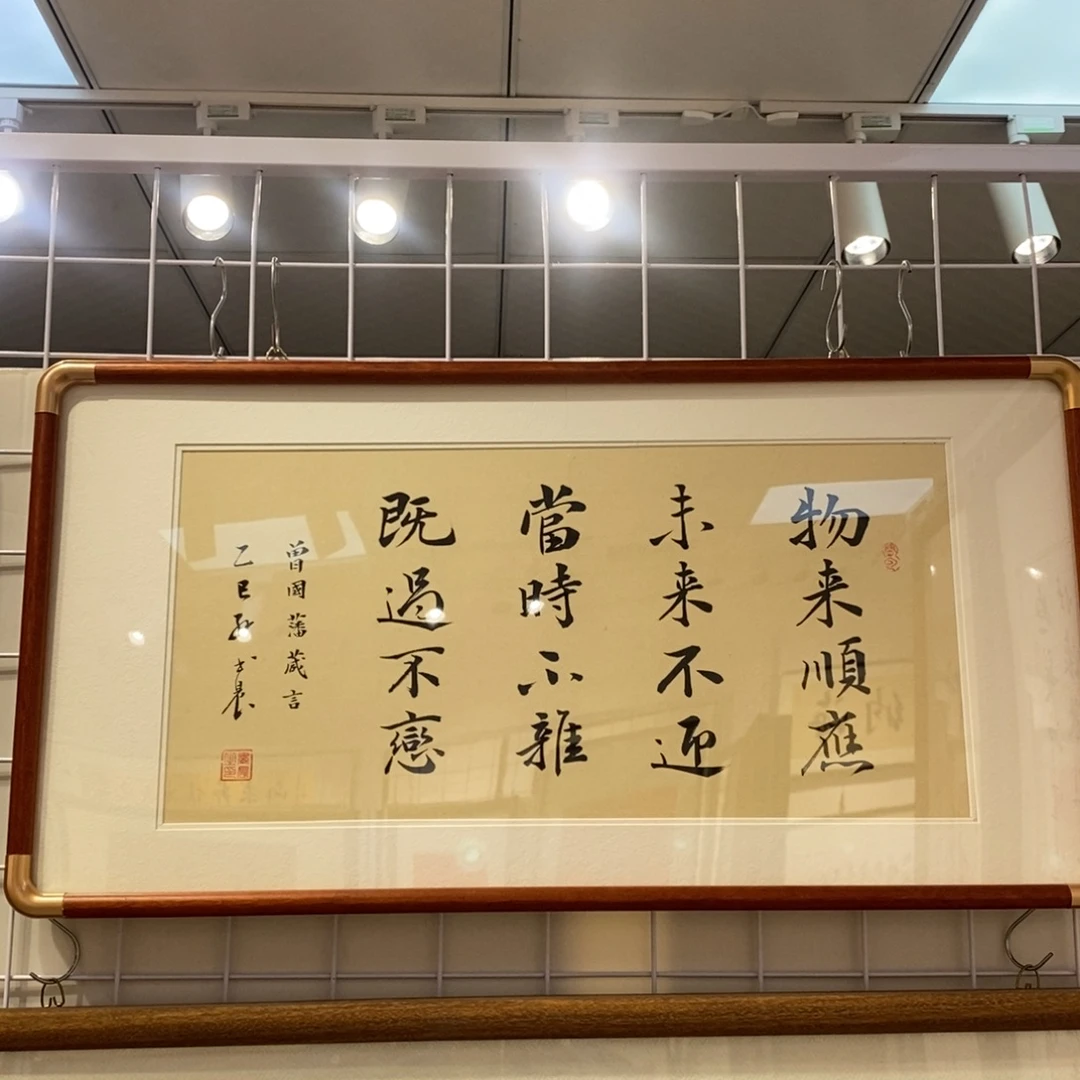 物来順應
未来不迎
當時不雜
既過不戀
曾國藩葴言
乙巳